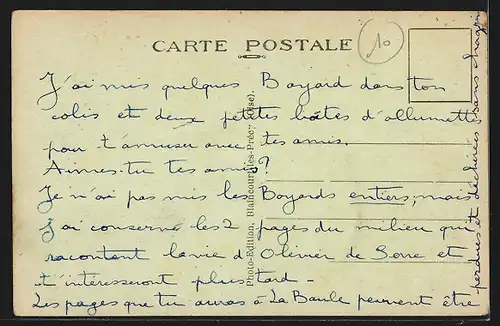 CARTE POSTALE
10
J'ai mis quelques Bayard dans ton
colis et deux petites boîtes d'allumettes
pour t'amuser avec tes amis.
Aimes-tu tes amis ?
Je n'ai pas mis les Bayards entiers, mais
j'ai conservé les 2 pages du milieu qui
racontent la vie d'Olivier de Serre et
t'intéresseront plus tard -
Les pages que tu auras à La Baule peuvent être
perdues et déchirées sans chagrin
Photo-Edition, Blaincourt-lès-Précy (Oise).